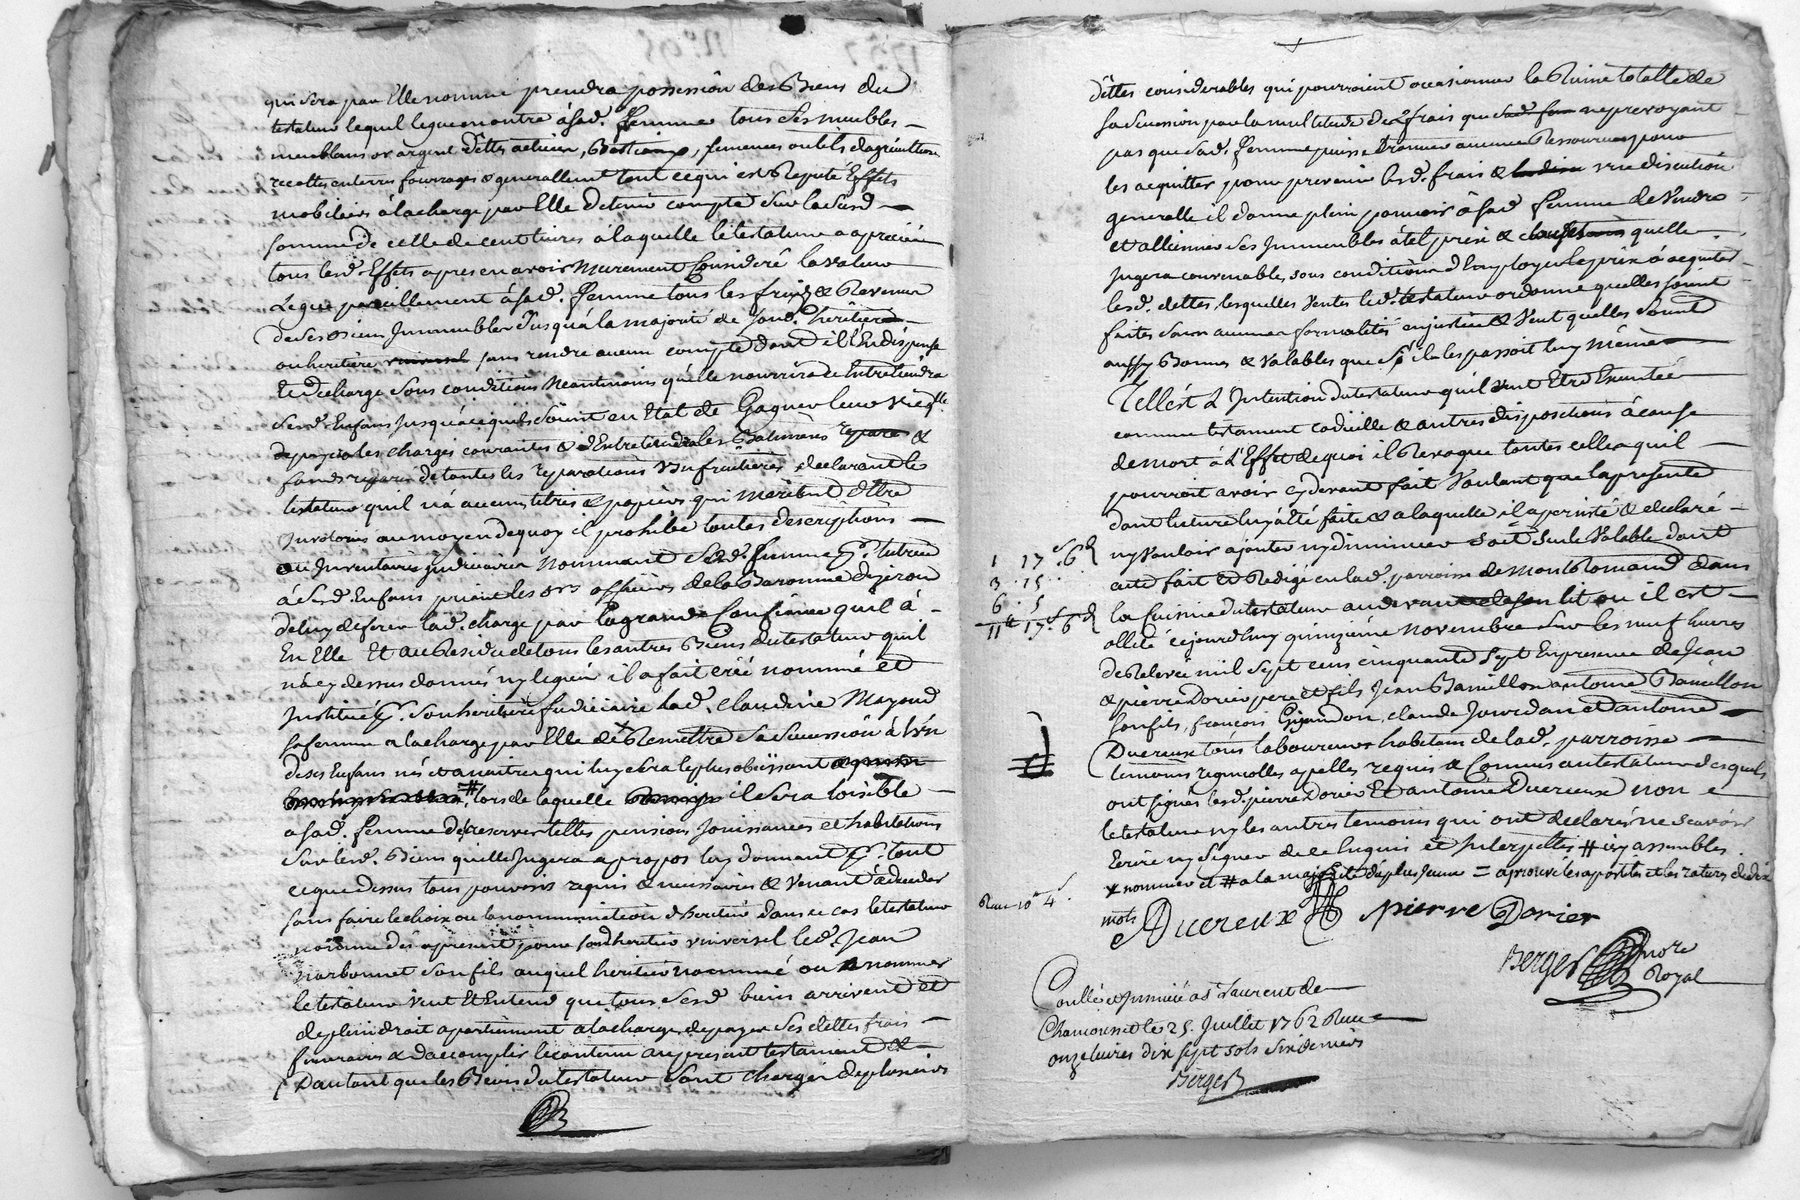 qui sera par Elle nommé prendra possession des Biens du
testateur lequel legue en outre à sad. femme tous ses meubles
meublans or argent dettes actives, Bestiaux, semences outils dagriculture
recoltes en terres fourrages & generallement tout ce qui est Reputé Effets
mobiliers à la charge par Elle de tenir compte sur la susd.
somme de celle de cent livres à laquelle le testateur a aprecié
tous lesd. Effets apres en avoir Murement Consideré la valeur
Legue pareillement à sad. femme tous les fruits & Revenus
de ses Immeubles Jusqu'à la majorité de sond. heritier
ou heritiere sans rendre aucun compte dont il l'En dispense
Et decharge sous conditions Neantmoins qu'elle nourrira & Entretiendra
sesd. Enfans Jusqu'à ce quils soient en Etat de Gagner leur vie
de payer les charges courantes & d'Entretenir les Batimens &
fonds de toutes les reparations usufruitieres declarant le
testateur quil n'à aucuns titres & papiers qui meritent d'Etre
Inventoriés au moyen de quoy il prohibe toutes descriptions
ou Inventaires judiciaires Nommant sad. femme pr. tutrice
à sesd. Enfans priant les srs officiers de la Baronnie dyzeron
de luy deferer lad. charge par la grande Confiance qu'il à
En Elle Et au Residu de tous les autres Biens du testateur qu'il
n'à cy dessus donnés ny legués il a fait créé nommé et
Institué pr. son heritiere fiduciaire lad. Claudine Mayoud
sa femme à la charge par Elle de Remettre sa succession à l'Un
de ses Enfans nés et à naitre qui luy sera le plus obeissant
# lors de laquelle il sera loisible
à sad. femme de se reserver telles pensions Jouissances et habitations
sur lesd. Biens quelle Jugera à propos luy donnant pr. tout
ce que dessus tous pouvoirs requis & necessaires & venant à deceder
sans faire le choix ou la nomination d'heritier dans ce cas le testateur
nomme dès à present pour son heritier universel led. Jean
Narbonnet son fils auquel heritier nommé ou à nommer
le testateur Veut Et Entend que tous sesd. biens arrivent et
de plein droit apartiennent à la charge de payer ses dettes frais
funeraires & d'accomplir le contenu au present testament &
D'autant que les Biens du testateur sont chargés de plusieurs
dettes considerables qui pourroient occasionner la Ruine totalle de
sa succession par la multitude de frais que ne prevoyant
pas que sad. femme puisse trouver aucune Ressource pour
les acquitter pour prevenir lesd. frais & une discution
generalle il donne plein pouvoir à sad. femme de Vendre
et alliener ses Immeubles à tel prix & quelle
Jugera convenables, sous condition d'Employer le prix à acquitter
lesd. dettes, lesquelles Ventes led. testateur ordonne quelles soient
faites sans aucunes formalités en justice & Veut quelles soient
aussy Bonnes & Valables que s'il les passoit luy Même
Telle est L'Intention du testateur qu'il veut Etre Executée
comme testament codicille & autres dispositions à cause
de mort à L'Effet de quoi il Revoque toutes celles qu'il
pourroit avoir cy devant fait Voulant que la presente
dont lecture luy à été faite & à laquelle il a persisté & declaré
ny Vouloir ajouter ny diminuer soit seule Valable dont
acte fait Et Redigé en lad. parroisse de Mont Romand dans
la Cuisine du testateur au devant de son lit ou il est
allité cejourdhuy quinzième novembre sur les neuf heures
de Relevée mil sept cens cinquante Sept En presence de Jean
& pierre Dorier pere et fils Jean Bamillon antoine Bamillon
son fils, françois Gijandon, claude Jourdan et antoine
Ducreux tous laboureurs habitans de lad. parroisse
temoins regnicolles apellés requis & Connus au testateur desquels
ont signés lesd. pierre Dorier Et antoine Ducreux non
le testateur ny les autres temoins qui ont declarés ne sçavoir
Ecrire ny signer de ce Enquis et Interpellés # icy assemblés
x nommer et # a la majorité du plus Jeune = aprouvé les apostiles et les ratures de dix
mots
Ducreux Pierre Dorier
Berger nore
Royal
1 17s 6d
3 15
6 5
11tt 17s 6d
Reçu 10tt 4s
Conllé et Insinué à St Laurent de
Chamousset le 25. Juillet 1762 Reçu
onze livres dix sept sols six deniers
Berger